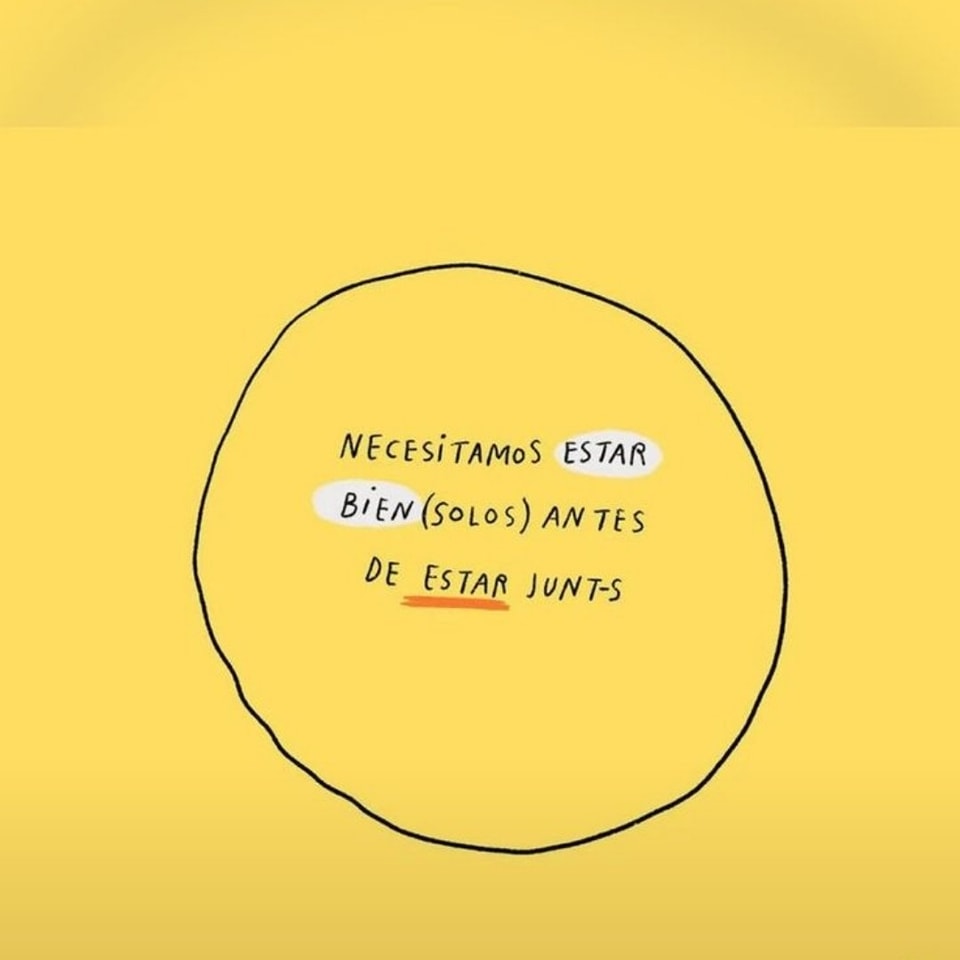 NECESiTAMOS ESTAR
BiEN (SOLOS) ANTES
DE ESTAR JUNT-S